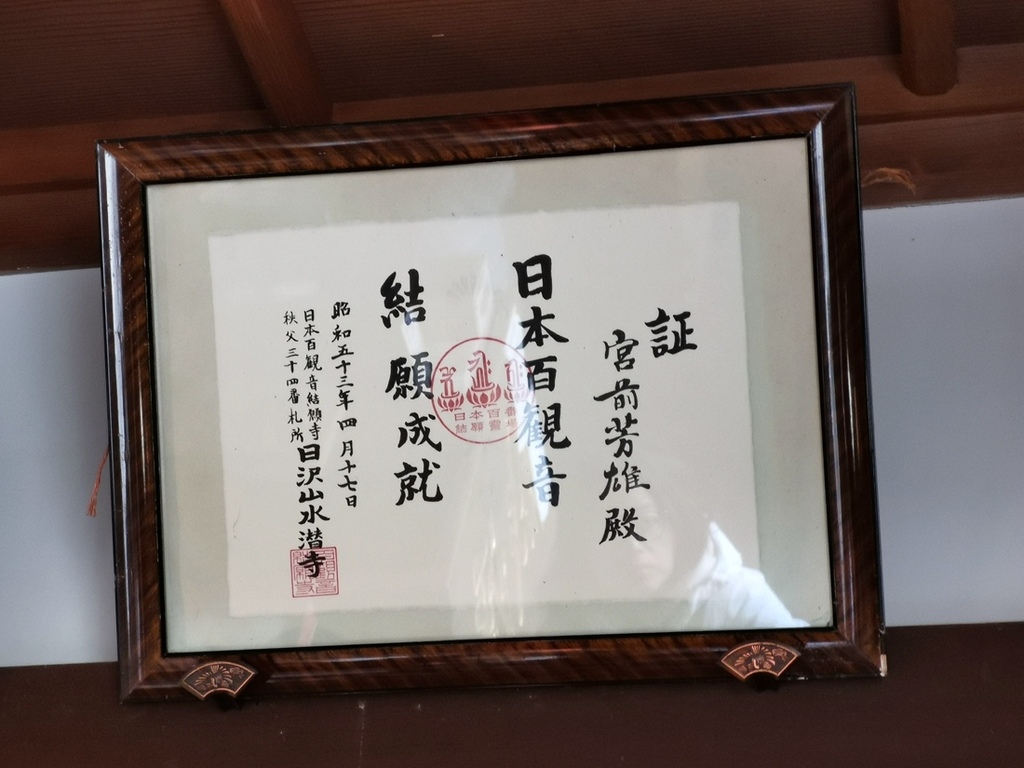 証
宮前芳雄殿
日本百観音
結願成就
昭和五十三年四月十七日
日本百観音結願寺
秩父三十四番札所
日沢山水潜寺